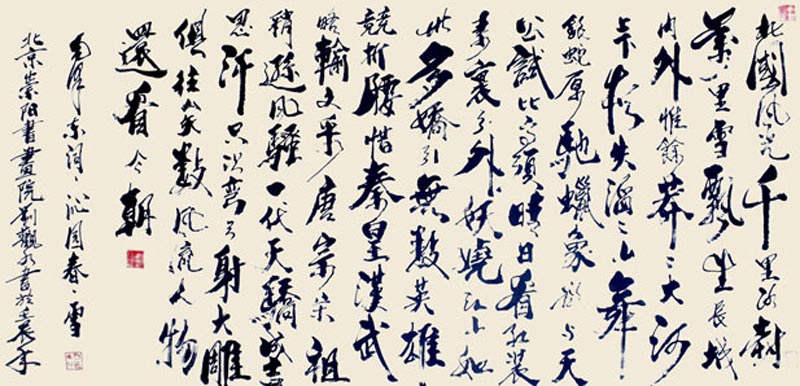 北國風光千里冰封
萬里雪飄望長城
内外惟餘莽莽大河
上下頓失滔滔山舞
銀蛇原馳蠟象欲與天
公試比高須晴日看紅裝
素裹分外妖嬈江山如
此多嬌引無數英雄
競折腰惜秦皇漢武
略輸文采唐宗宋祖
稍遜風騷一代天驕成吉
思汗只識彎弓射大雕
俱往矣數風流人物
還看今朝
毛澤東詞沁園春雪
北京書畫院劉觀書於壬辰年